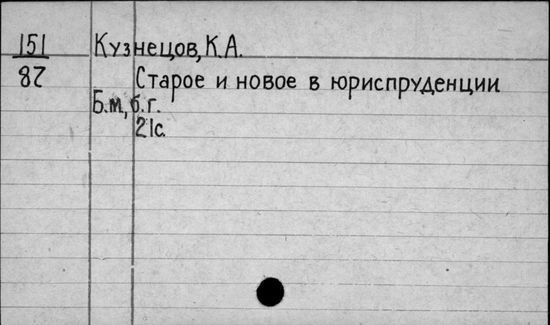 151
28
Кузнецов, К.А.
Старое и новое в юриспруденции
Б.м., б.г.
21с.